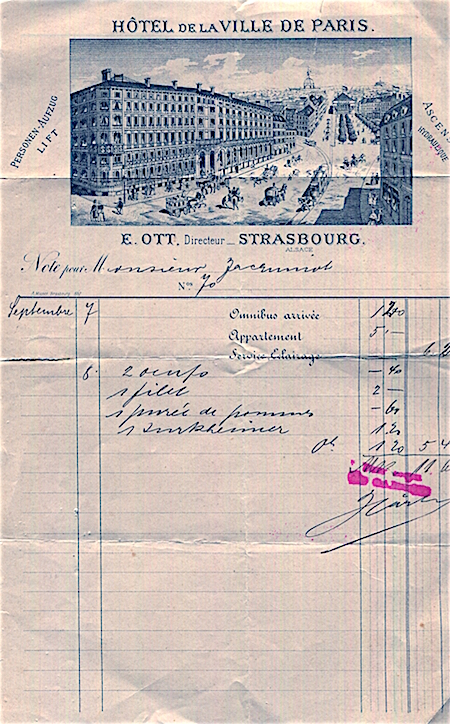 HÔTEL DE LA VILLE DE PARIS.
PERSONEN-AUFZUG
LIFT
ASCEN-
HYDRAULIQUE
E. OTT, Directeur_ STRASBOURG.
ALSACE
Note pour Monsieur
Nos 70
Septembre 7 Omnibus arrivée 1 20
Appartement 5 —
Service Eclairage 6 2
8 2 oeufs — 40
1 filet 2 —
1 purée de pommes — 60
1 Durkheimer 1 20
1 20 5 4
11 6